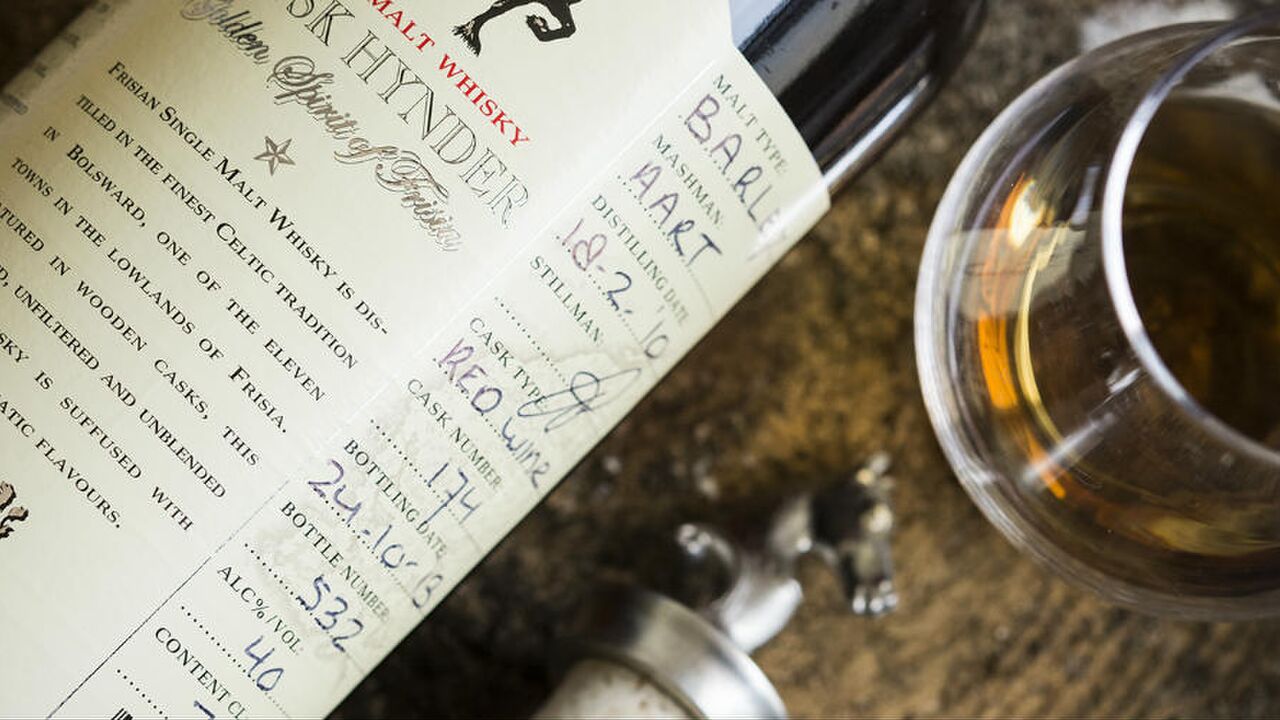 MALT WHISKY
SK HYNDER
Golden Spirit of Frisia
FRISIAN SINGLE MALT WHISKY IS DIS-
TILLED IN THE FINEST CELTIC TRADITION
IN BOLSWARD, ONE OF THE ELEVEN
TOWNS IN THE LOWLANDS OF FRISIA.
ATURED IN WOODEN CASKS, THIS
D, UNFILTERED AND UNBLENDED
SKY IS SUFFUSED WITH
ATIC FLAVOURS.
MALT TYPE
BARLEY
MASHMAN
AART
DISTILLING DATE
18-2-10
STILLMAN
CASK TYPE
RED WINE
CASK NUMBER
174
BOTTLING DATE
24-10-13
BOTTLE NUMBER
532
ALC%/VOL.
40
CONTENT CL